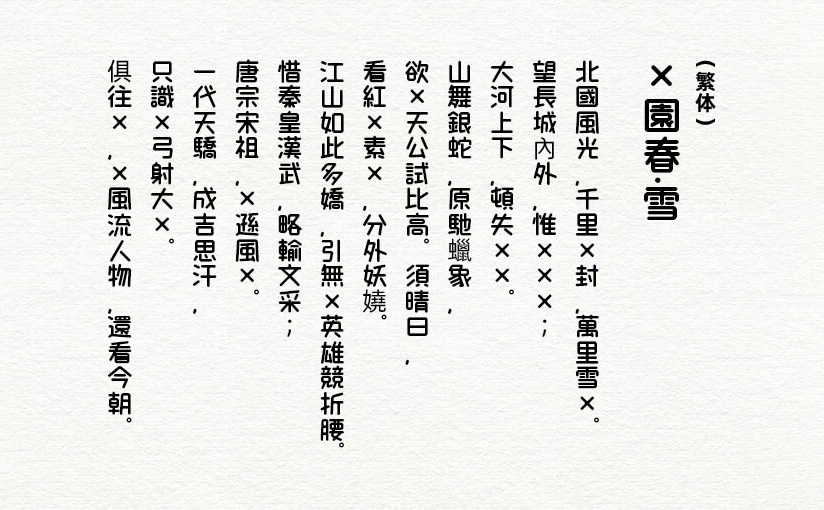 (繁体)
×園春·雪
北國風光,千里×封,萬里雪×。
望長城內外,惟×××;
大河上下,頓失××。
山舞銀蛇,原馳蠟象,
欲×天公試比高。須晴日,
看紅×素×,分外妖嬈。
江山如此多嬌,引無×英雄競折腰。
惜秦皇漢武,略輸文采;
唐宗宋祖,×遜風×。
一代天驕,成吉思汗,
只識×弓射大×。
俱往×,×風流人物,還看今朝。